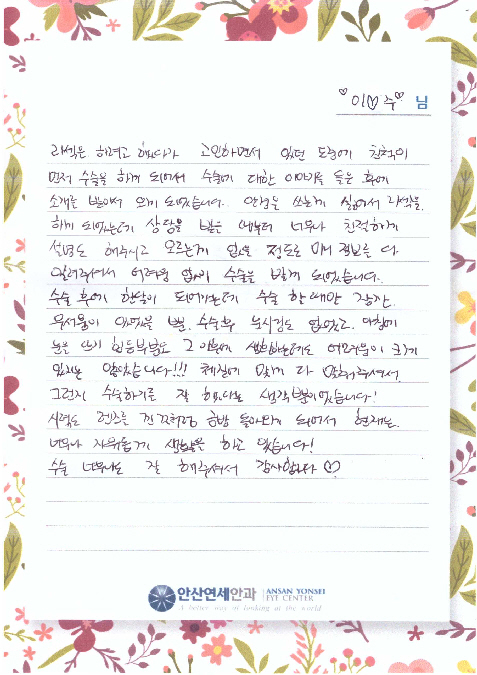 이♡수 님
라섹은 하려고 했다가 고민하면서 있던 도중에 친척이
먼저 수술을 하게 되어서 수술에 대한 이야기를 들은 후에
소개를 받아서 오게 되었습니다. 안경을 쓰는게 싫어서 라섹을
하게 되었는데 상담을 받을 때부터 너무나 친절하게
설명도 해주시고 모르는게 없을 정도로 미리 정보를 다
알려주셔서 어려움 없이 수술을 받게 되었습니다.
수술 후에 한달이 되어가는데 수술 할때만 그런지
무서움이 있었을 뿐, 수술후 통증도 없었고, 아침에
눈을 뜨기 힘든부분도 그 이후에 생활하는데도 어려움이 크게
있지는 않았습니다!!! 체질에 맞게 다 맞춰주셔서
그런지 수술하기를 잘 했다는 생각뿐이었습니다!
시력도 렌즈를 낀것처럼 금방 돌아오게 되어서 현재는
너무나 자유롭게 생활을 하고 있습니다!
수술 너무나도 잘 해주셔서 감사합니다 ♡
안산연세안과 ANSAN YONSEI
EYE CENTER
A better way of looking at the world